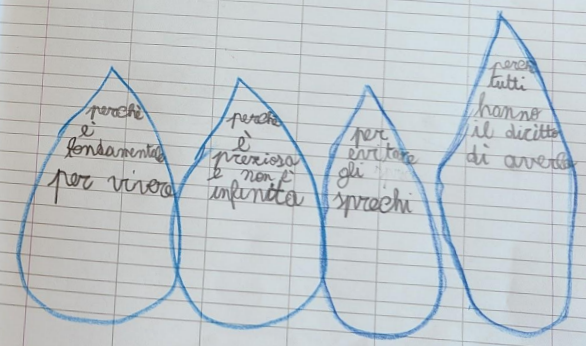 perchè
è
fondamentale
per vivere
perchè
è
preziosa
e non è
infinita
per
evitare
gli
sprechi
perchè
tutti
hanno
il diritto
di averla